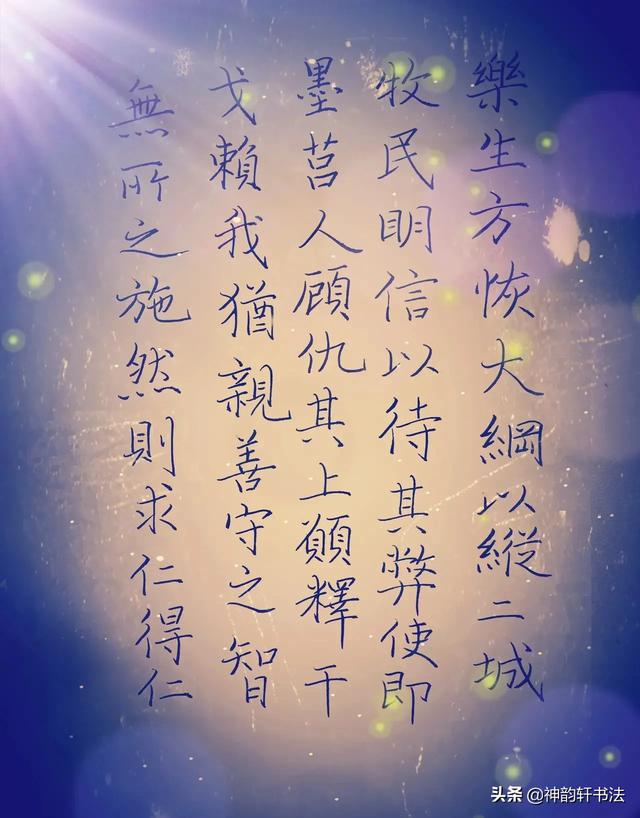 樂生方恢大綱以縱二城
牧民明信以待其弊使即
墨莒人顧仇其上願釋干
戈賴我猶親善守之智
無所之施然則求仁得仁
头条 @神韵轩书法